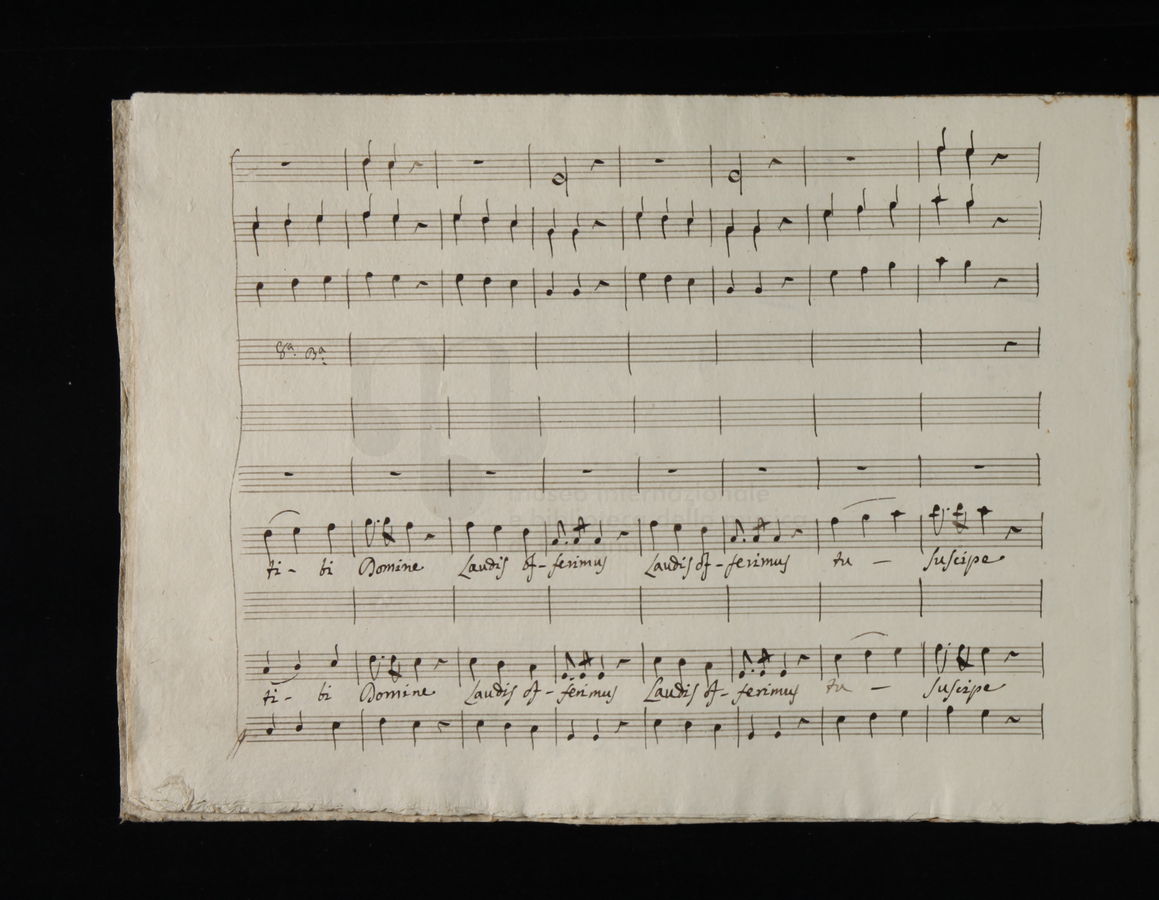 8ª Bª
museo internazionale
e biblioteca della musica
ti - bi Domine Laudis of - ferimus Laudis of - ferimus tu — suscipe
ti - bi Domine Laudis of - ferimus Laudis of - ferimus tu — suscipe